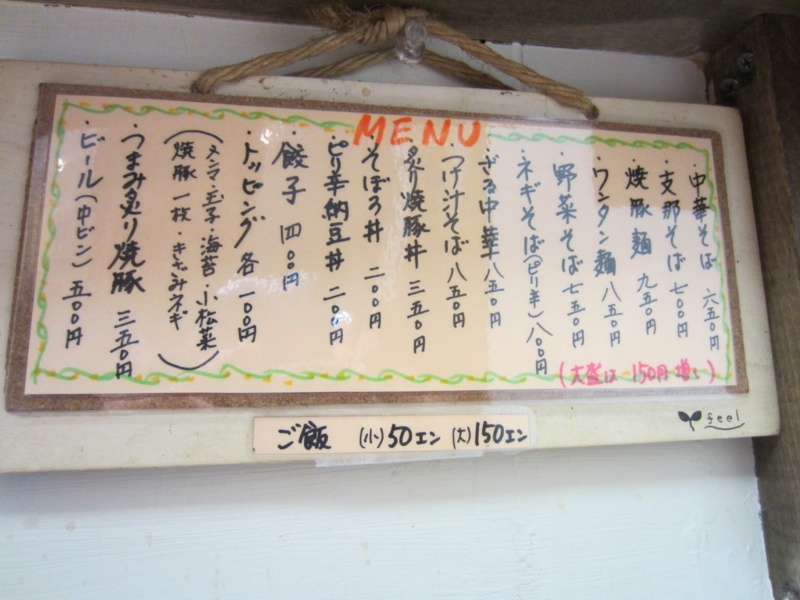 MENU
・中華そば 六五〇円
・支那そば 七〇〇円
・焼豚麺 九五〇円
・ワンタン麺 八五〇円
・野菜そば 七五〇円
・ネギそば(ピリ辛) 八〇〇円
(大盛は 150円増し)
・ざる中華 八五〇円
・つけ汁そば 八五〇円
・炙り焼豚丼 三五〇円
・そぼろ丼 二〇〇円
・ピリ辛納豆丼 二〇〇円
・餃子 四〇〇円
・トッピング各 一〇〇円
(メンマ・玉子・海苔・小松菜
焼豚一枚・きざみネギ)
・つまみ炙り焼豚 三五〇円
・ビール(中ビン) 五〇〇円
ご飯 (小)50エン (大)150エン
feel